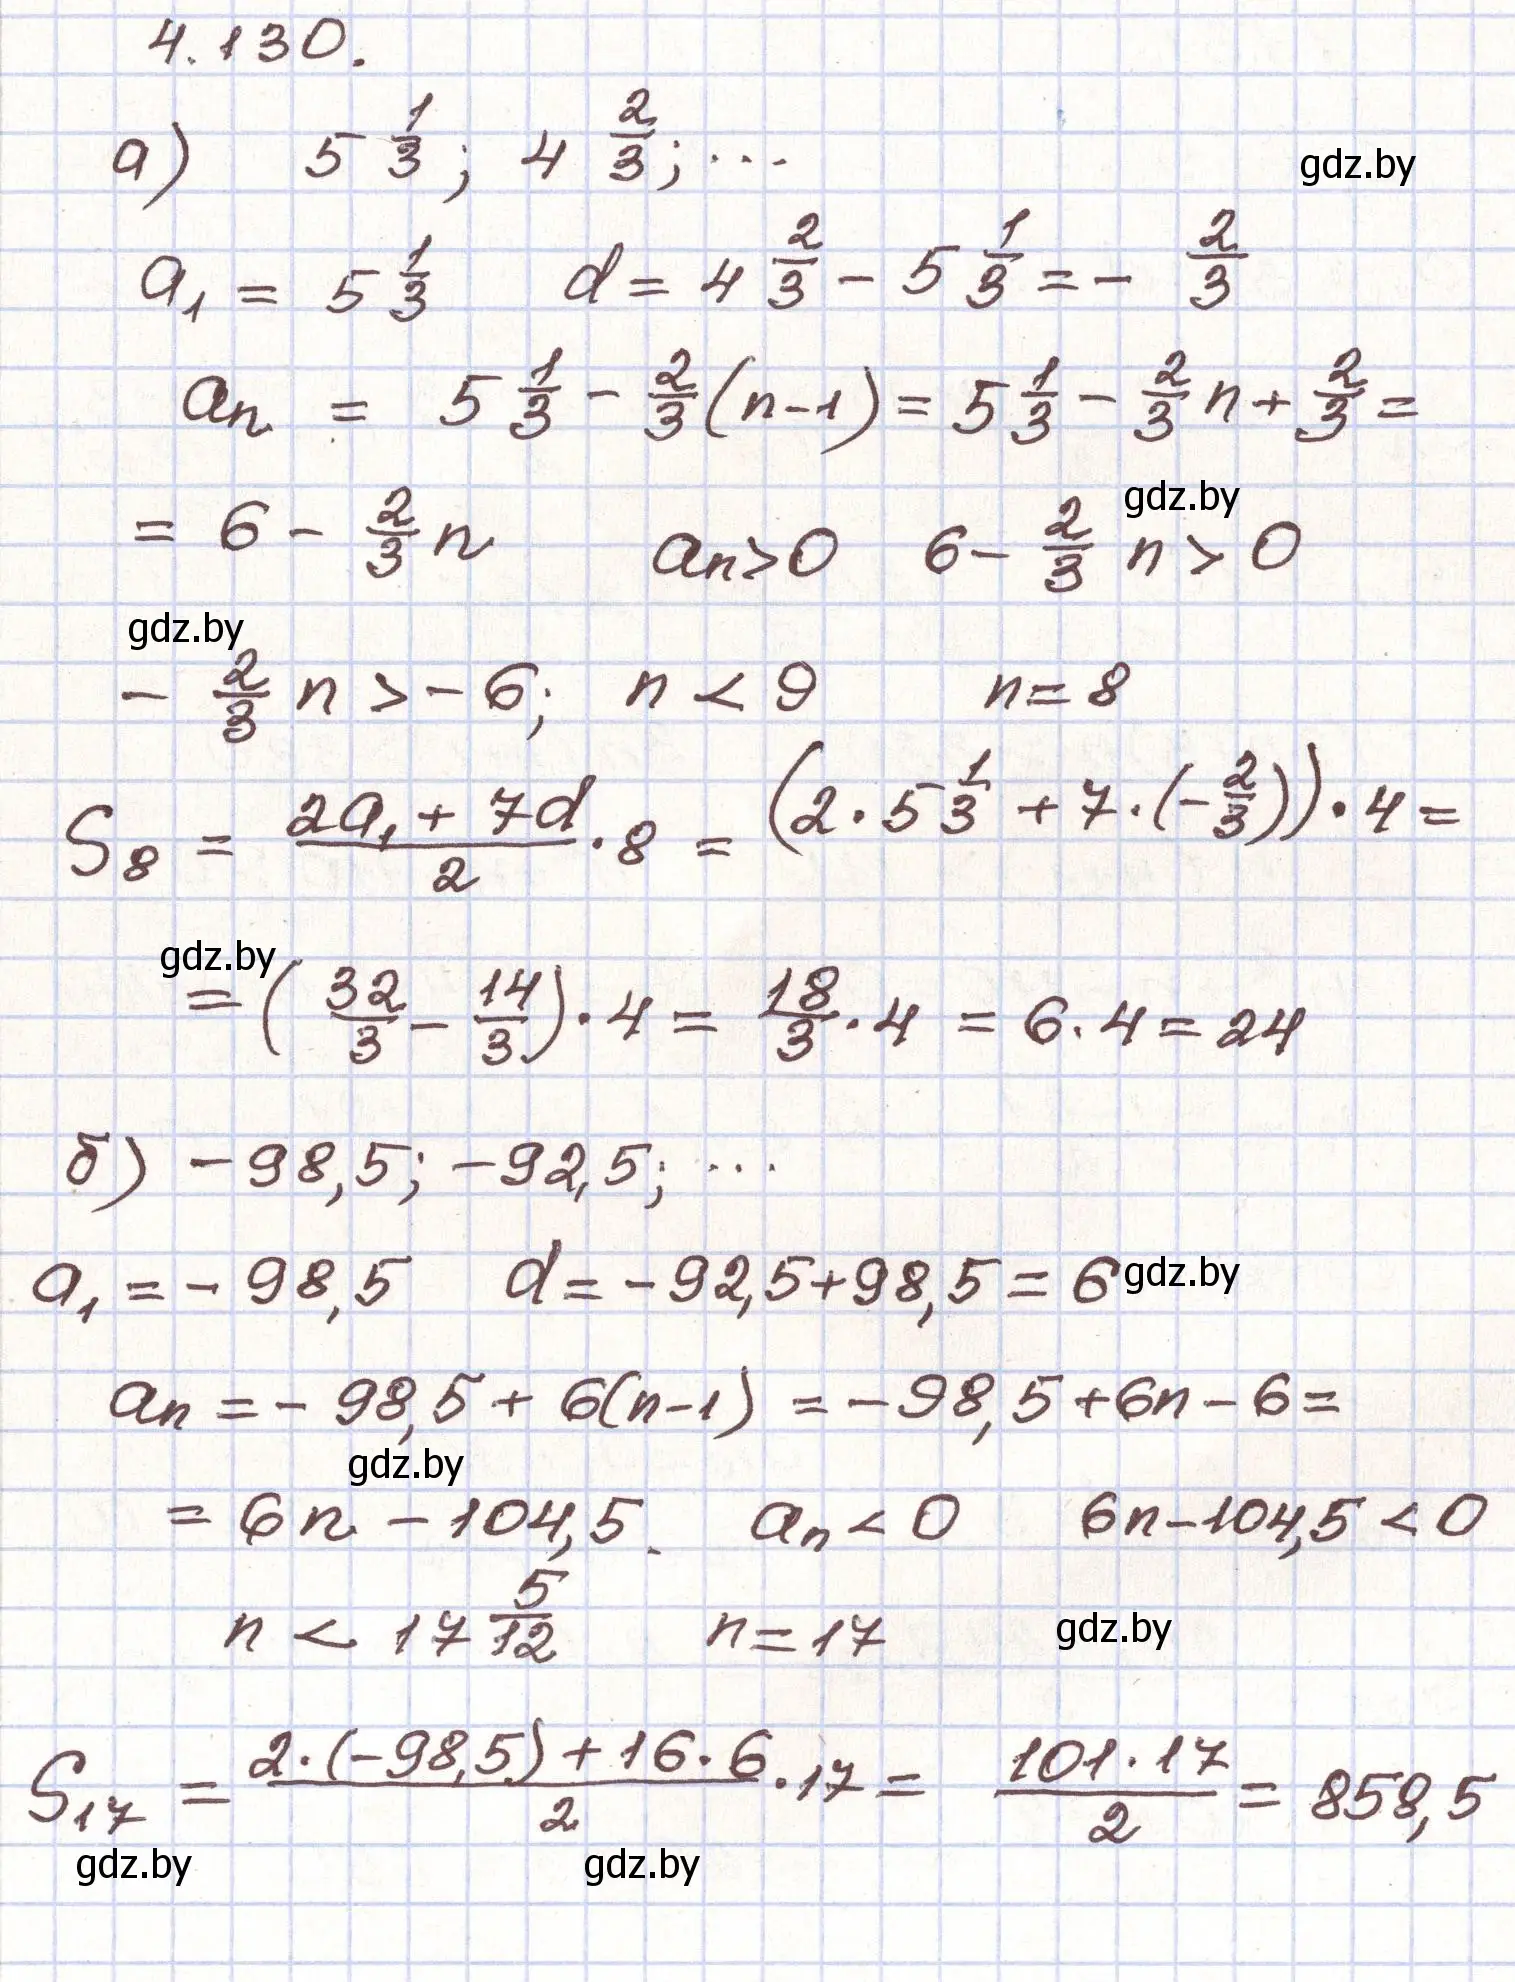 4.130.
а) 5 1/3; 4 2/3; ...
gdz.by
a₁ = 5 1/3 d = 4 2/3 - 5 1/3 = - 2/3
aₙ = 5 1/3 - 2/3 (n-1) = 5 1/3 - 2/3 n + 2/3 =
gdz.by
= 6 - 2/3 n aₙ>0 6 - 2/3 n > 0
gdz.by
- 2/3 n > -6; n < 9 n = 8
S₈ = (2a₁ + 7d)/2 · 8 = (2 · 5 1/3 + 7 · (- 2/3)) · 4 =
gdz.by
= (32/3 - 14/3) · 4 = 18/3 · 4 = 6 · 4 = 24
б) -98,5; -92,5; ...
a₁ = -98,5 d = -92,5+98,5 = 6 gdz.by
aₙ = -98,5 + 6(n-1) = -98,5+6n-6 =
gdz.by
= 6n - 104,5. aₙ < 0 6n-104,5 < 0
n < 17 5/12 n = 17 gdz.by
S₁₇ = (2·(-98,5) + 16·6)/2 · 17 = (101·17)/2 = 858,5
gdz.by gdz.by